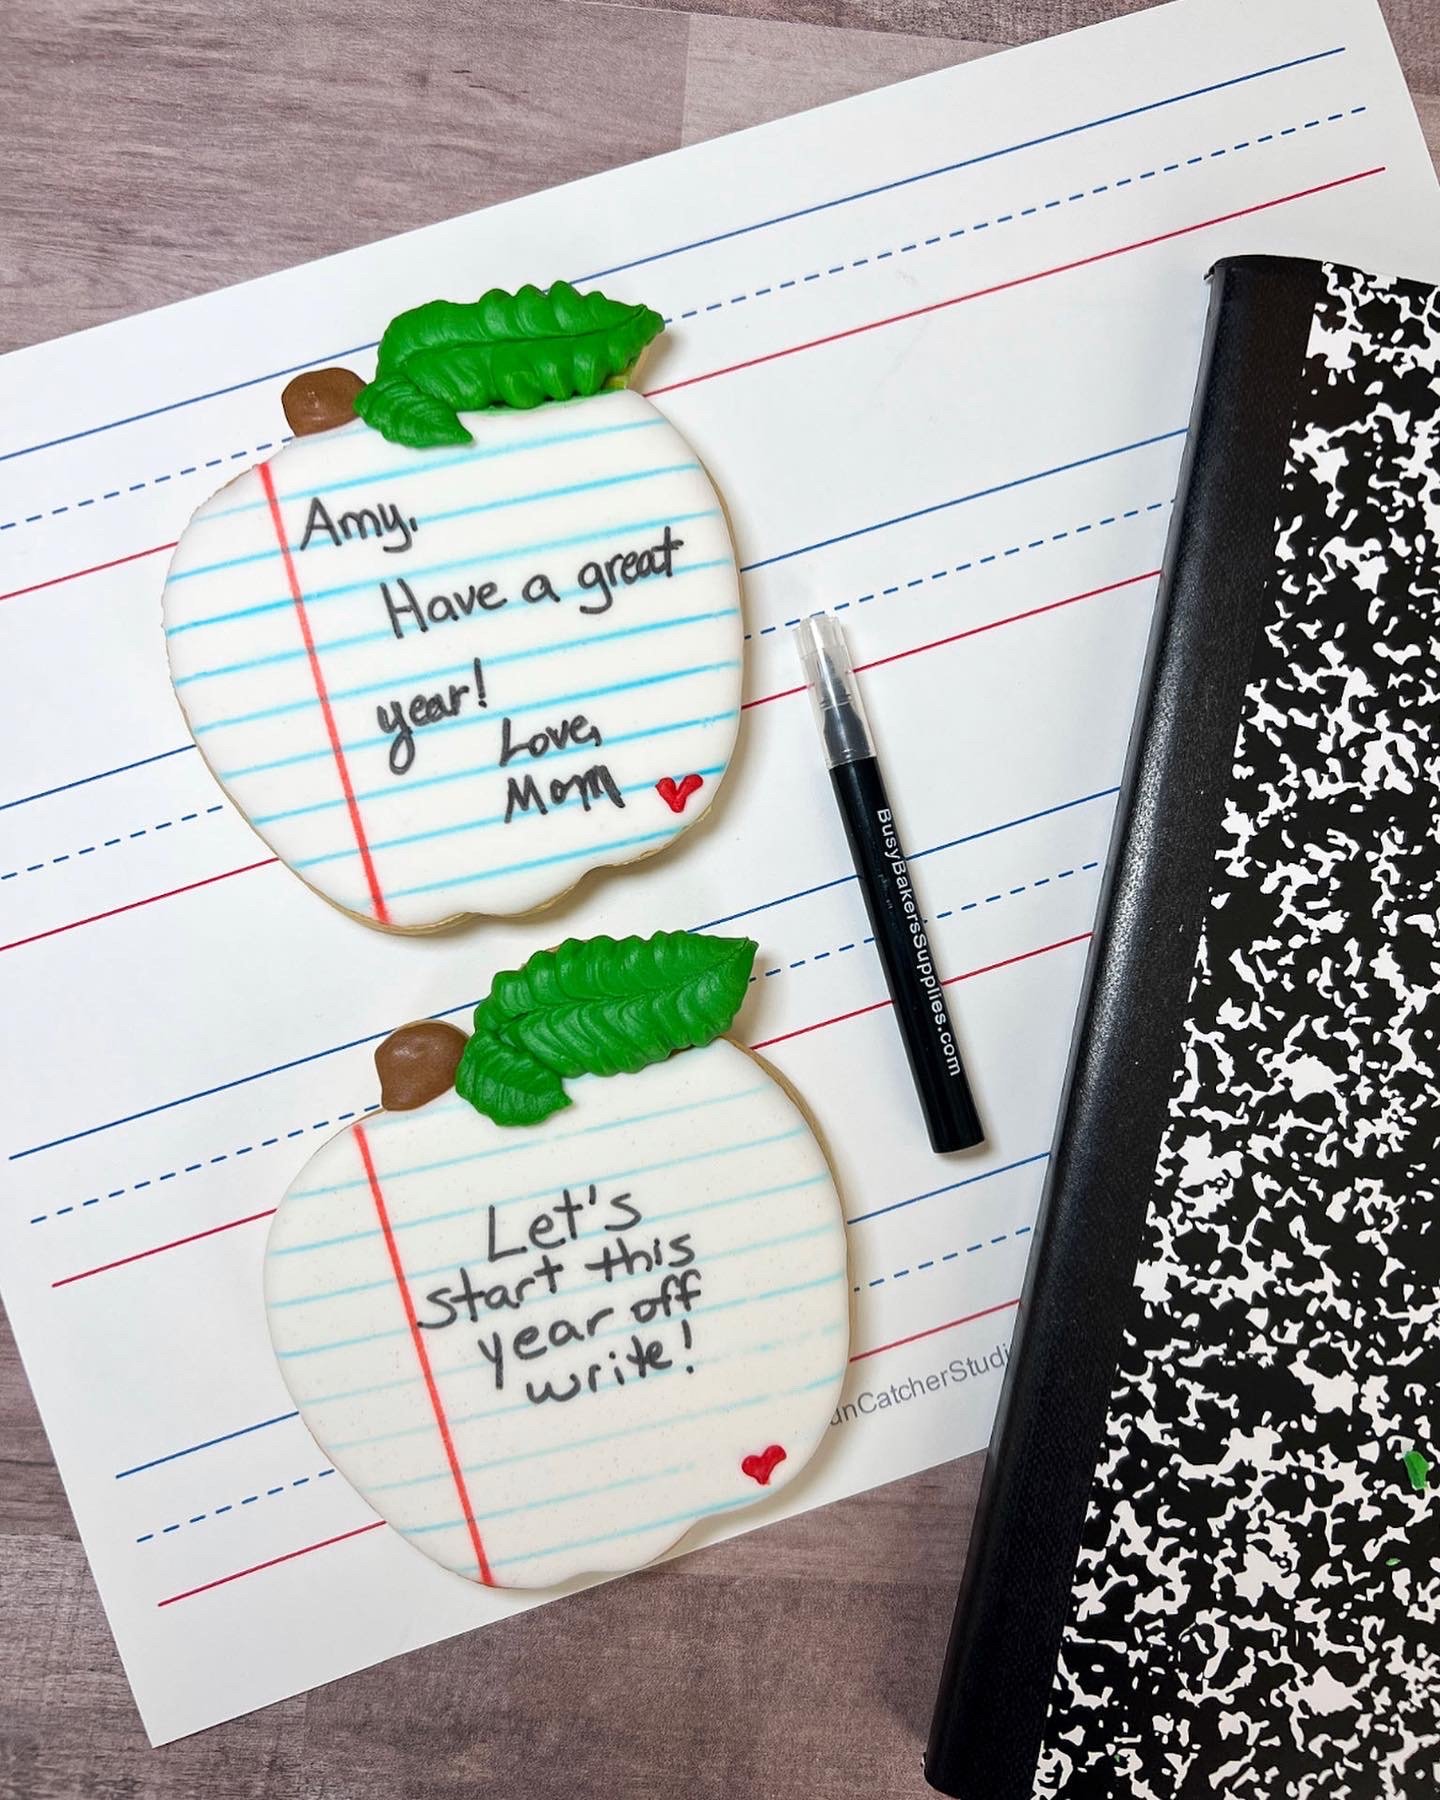 Amy,
Have a great
year!
Love,
Mom
BusyBakersSupplies.com
Let's
start this
year off
write!